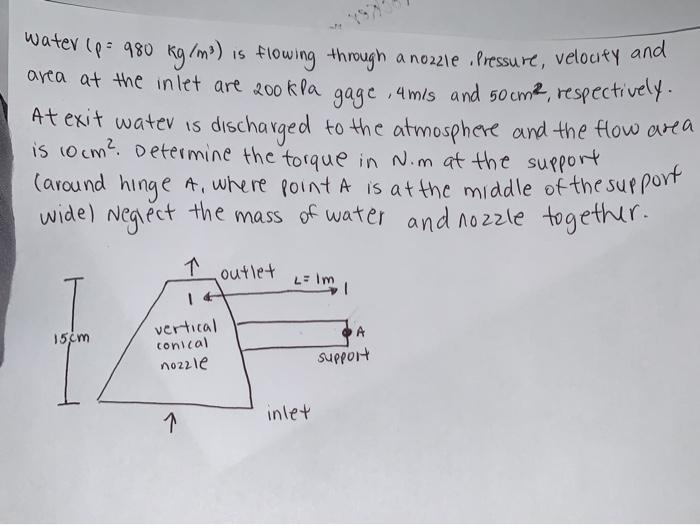 water (ρ= 980 kg/m³) is flowing through a nozzle . Pressure, velocity and
area at the inlet are 200 kPa gage , 4m/s and 50 cm², respectively.
At exit water is discharged to the atmosphere and the flow area
is 10cm². Determine the torque in N.m at the support
(around hinge A, where point A is at the middle of the support
wide) Neglect the mass of water and nozzle together.
↑ outlet L= 1m
15cm
vertical
conical
nozzle
A
support
↑ inlet